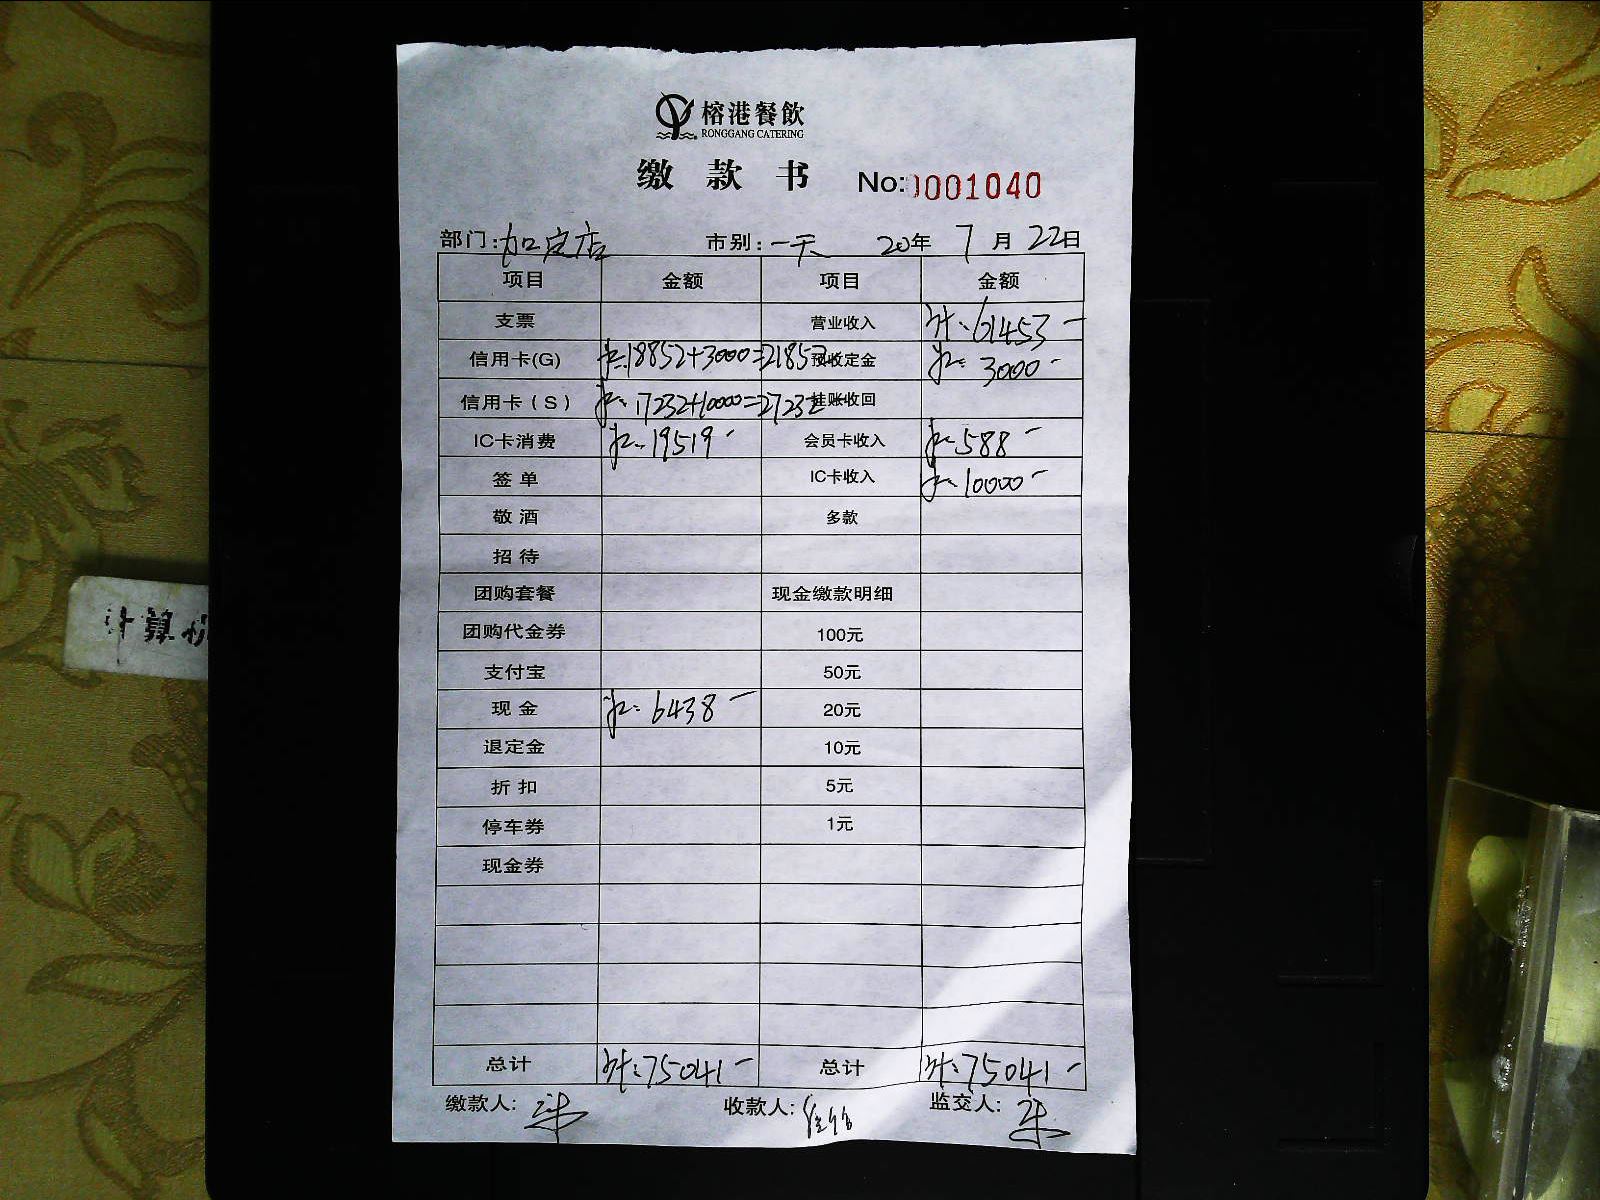 榕港餐飲
RONGGANG CATERING
缴款书 No:0001040
部门:加定店 市别:一天 20年7月22日
项目 金额 项目 金额
支票 营业收入 计:61453-
信用卡(G) 18852+3000=21852 预收定金 3000-
信用卡(S) 17232+10000=27232 挂账收回
IC卡消费 19519- 会员卡收入 588-
签单 IC卡收入 10000-
敬酒 多款
招待
团购套餐 现金缴款明细
团购代金券 100元
支付宝 50元
现金 6438- 20元
退定金 10元
折扣 5元
停车券 1元
现金券
总计 计:75041- 总计 计:75041-
缴款人: 收款人: 监交人:
计算机